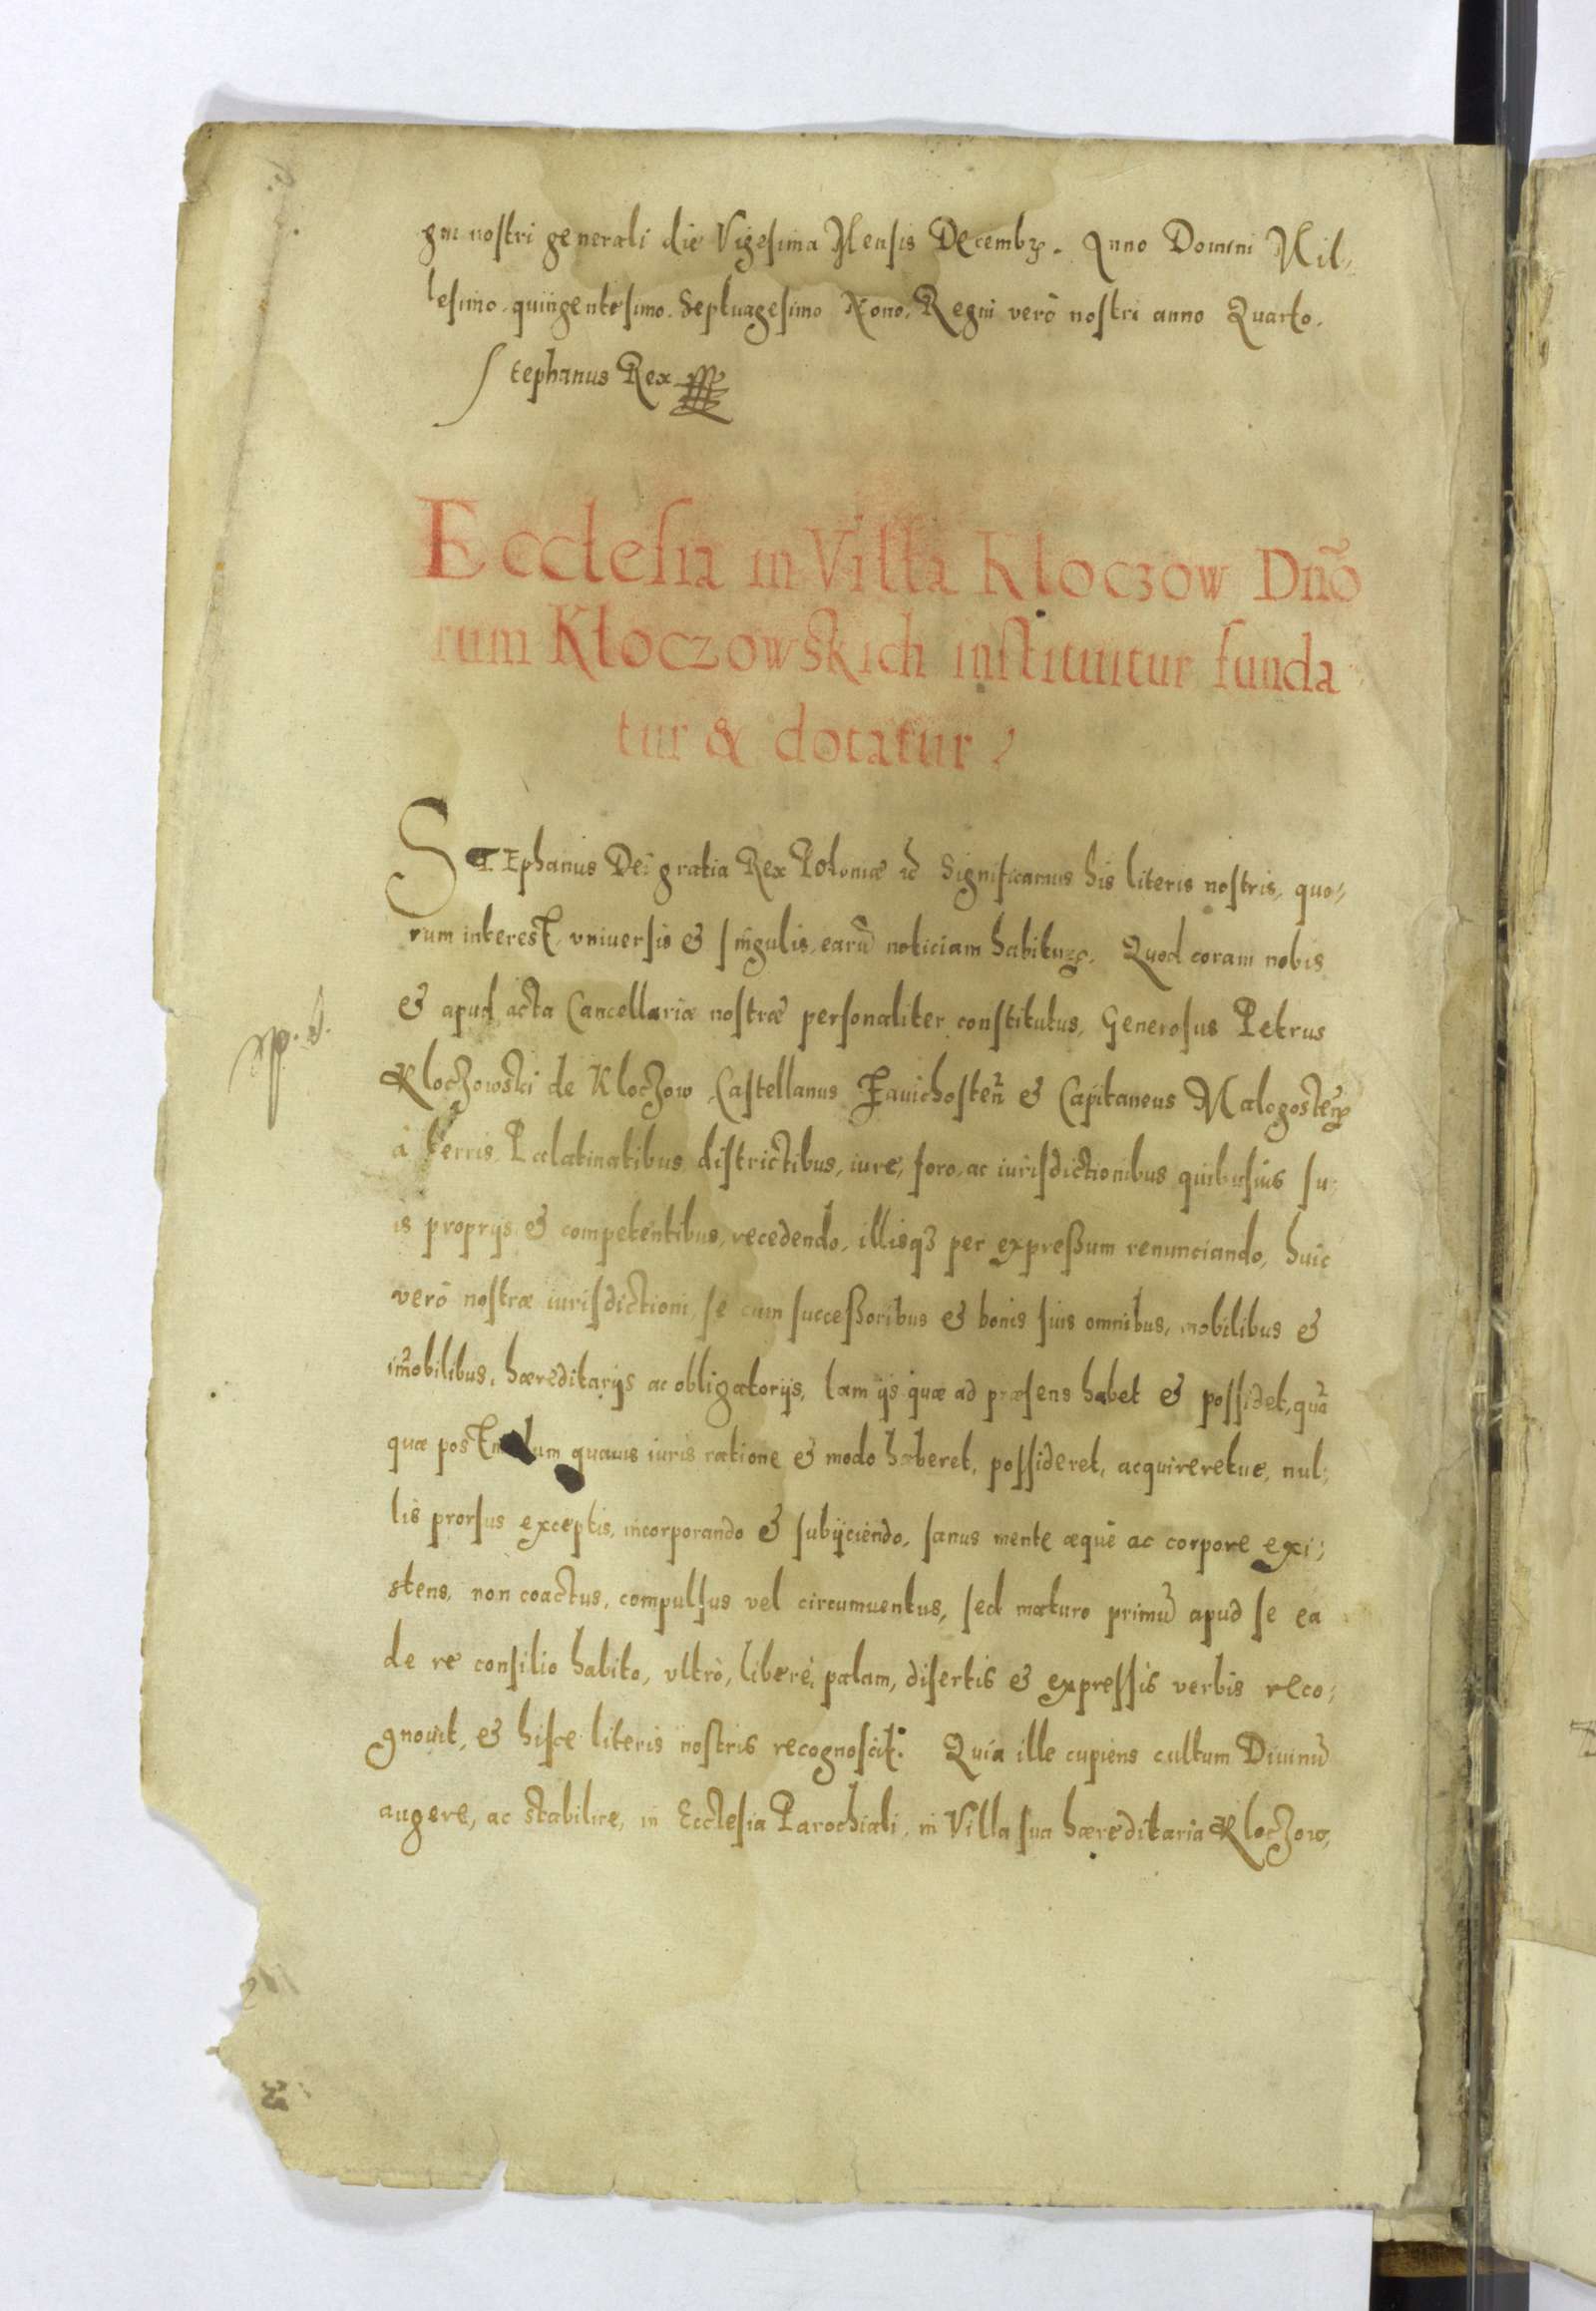 gni nostri generali die Vigesima Mensis Decembꝝ. Anno Domini Mil-
lesimo. quingentesimo. Septuagesimo Nono. Regni verò nostri anno Quarto.
Stephanus Rex
Ecclesia in Villa Kłoczow Dnõ
rum Kłoczowskich instituitur funda
tur & dotatur
STEphanus Dei gratia Rex Poloniæ &c Significamus his literis nostris, quo-
rum interest, vniuersis & singulis, earũ noticiam habituꝝ. Quod coram nobis
& apud acta Cancellariæ nostræ personaliter constitutus, Generosus Petrus
Kloczowski de Kloczow Castellanus Zauichosteñ & Capitaneus Malogosteñ
à terris Palatinatibus districtibus, iure, foro, ac iurisdictionibus quibusuis su-
is proprijs & competentibus, recedendo, illisqꝫ per expreßum renunciando, huic
verò nostræ iurisdictioni se cum succeßoribus & bonis suis omnibus, mobilibus &
im̃obilibus, hæreditarijs ac obligatorijs, tam ijs quæ ad præsens habet & possidet, quã
quæ postmodum quauis iuris ratione & modo haberet, possideret, acquireretue, nul-
lis prorsus exceptis, incorporando & subijciendo, sanus mente æquè ac corpore exi-
stens, non coactus, compulsus vel circumuentus, sed maturo primũ apud se ea
de re consilio habito, vltrò, liberè, palam, disertis & expressis verbis reco-
gnouit, & hisce literis nostris recognoscit. Quia ille cupiens cultum Diuinũ
augere, ac stabilire, in Ecclesia Parochiali, in Villa sua hæreditaria Kloczow,